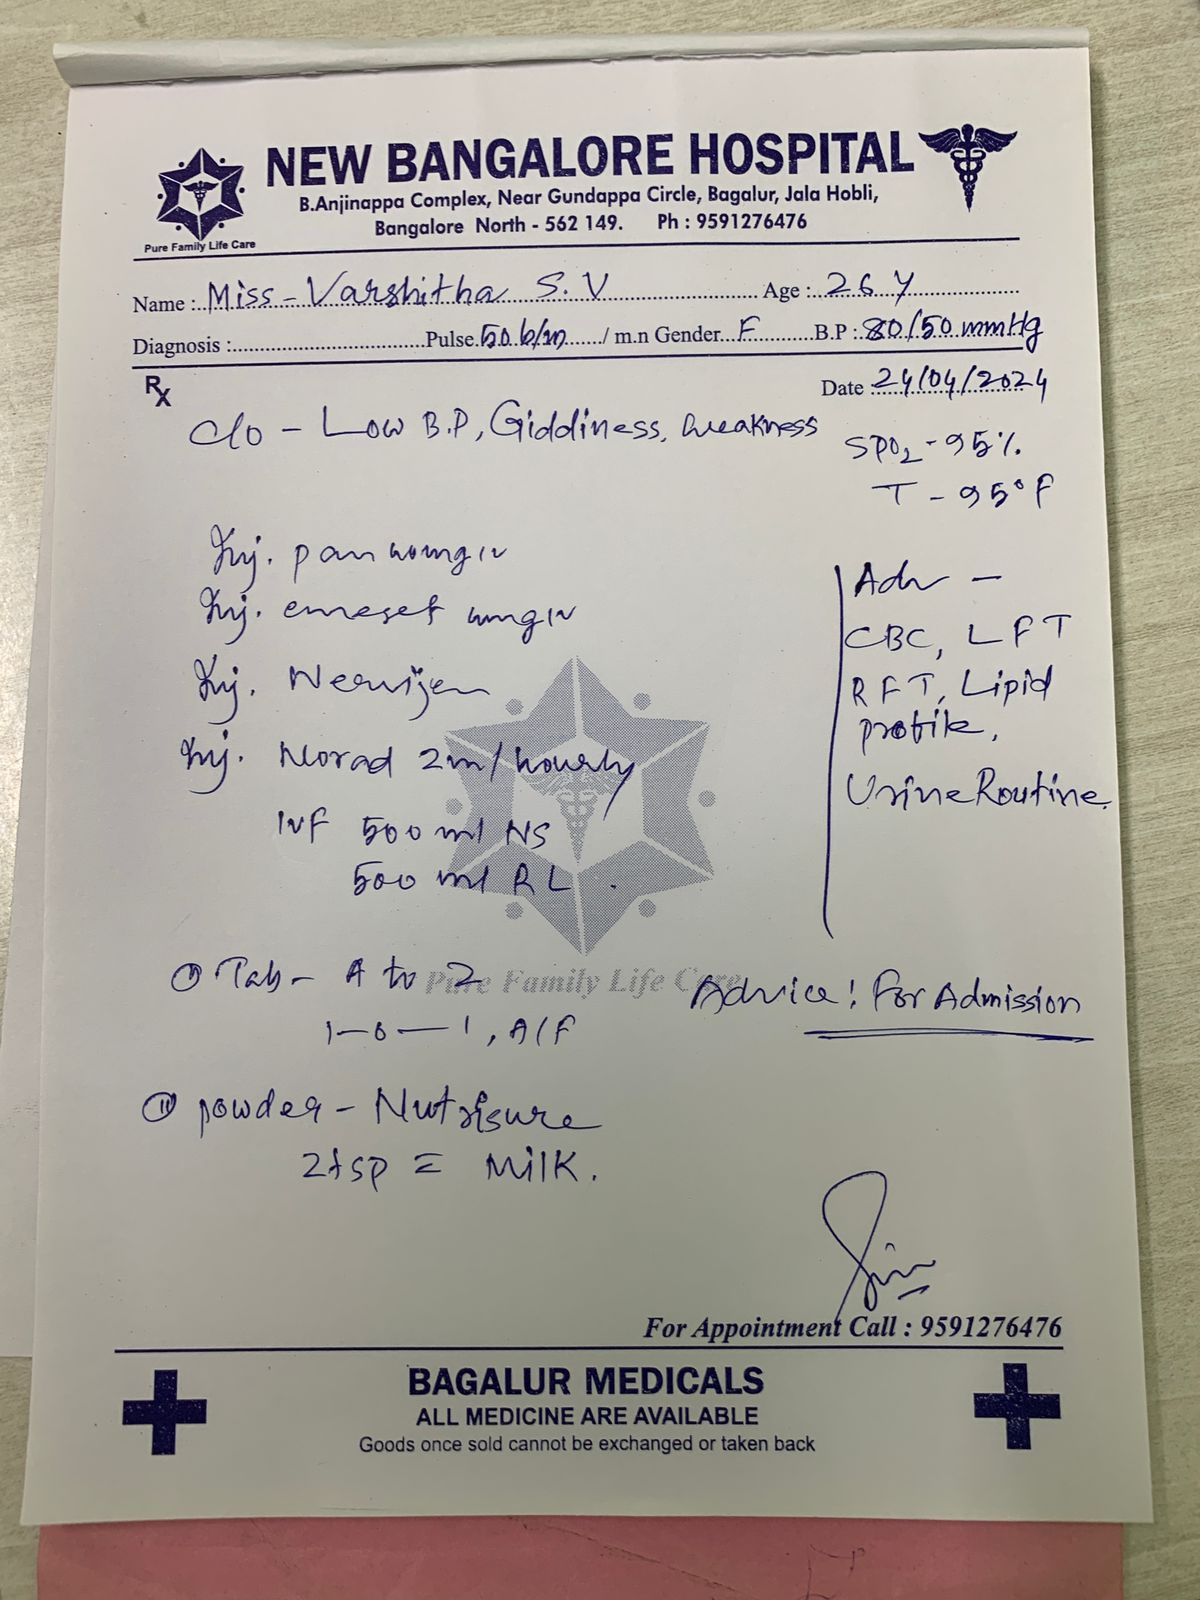 NEW BANGALORE HOSPITAL
B.Anjinappa Complex, Near Gundappa Circle, Bagalur, Jala Hobli,
Bangalore North - 562 149. Ph : 9591276476
Pure Family Life Care
Name : Miss - Varshitha S. V Age : 26 Y
Diagnosis : Pulse 50 b/m / m.n Gender F B.P : 80/50 mmHg
Rx
Date 24/04/2024
C/o - Low B.P, Giddiness, Weakness
SPO2 - 95%
T - 95°F
Inj. pan 40mg IV
Inj. emeset 4mg IV
Inj. Nervijen
Inj. Norad 2ml hourly
IVF 500 ml NS
500 ml RL.
Adv -
CBC, LFT
RFT, Lipid
profile,
Urine Routine.
Pure Family Life Care
① Tab - A to Z
1-0-1, A/F
Advice! For Admission
⑪ powder - Nutrisure
2tsp = Milk.
For Appointment Call : 9591276476
BAGALUR MEDICALS
ALL MEDICINE ARE AVAILABLE
Goods once sold cannot be exchanged or taken back